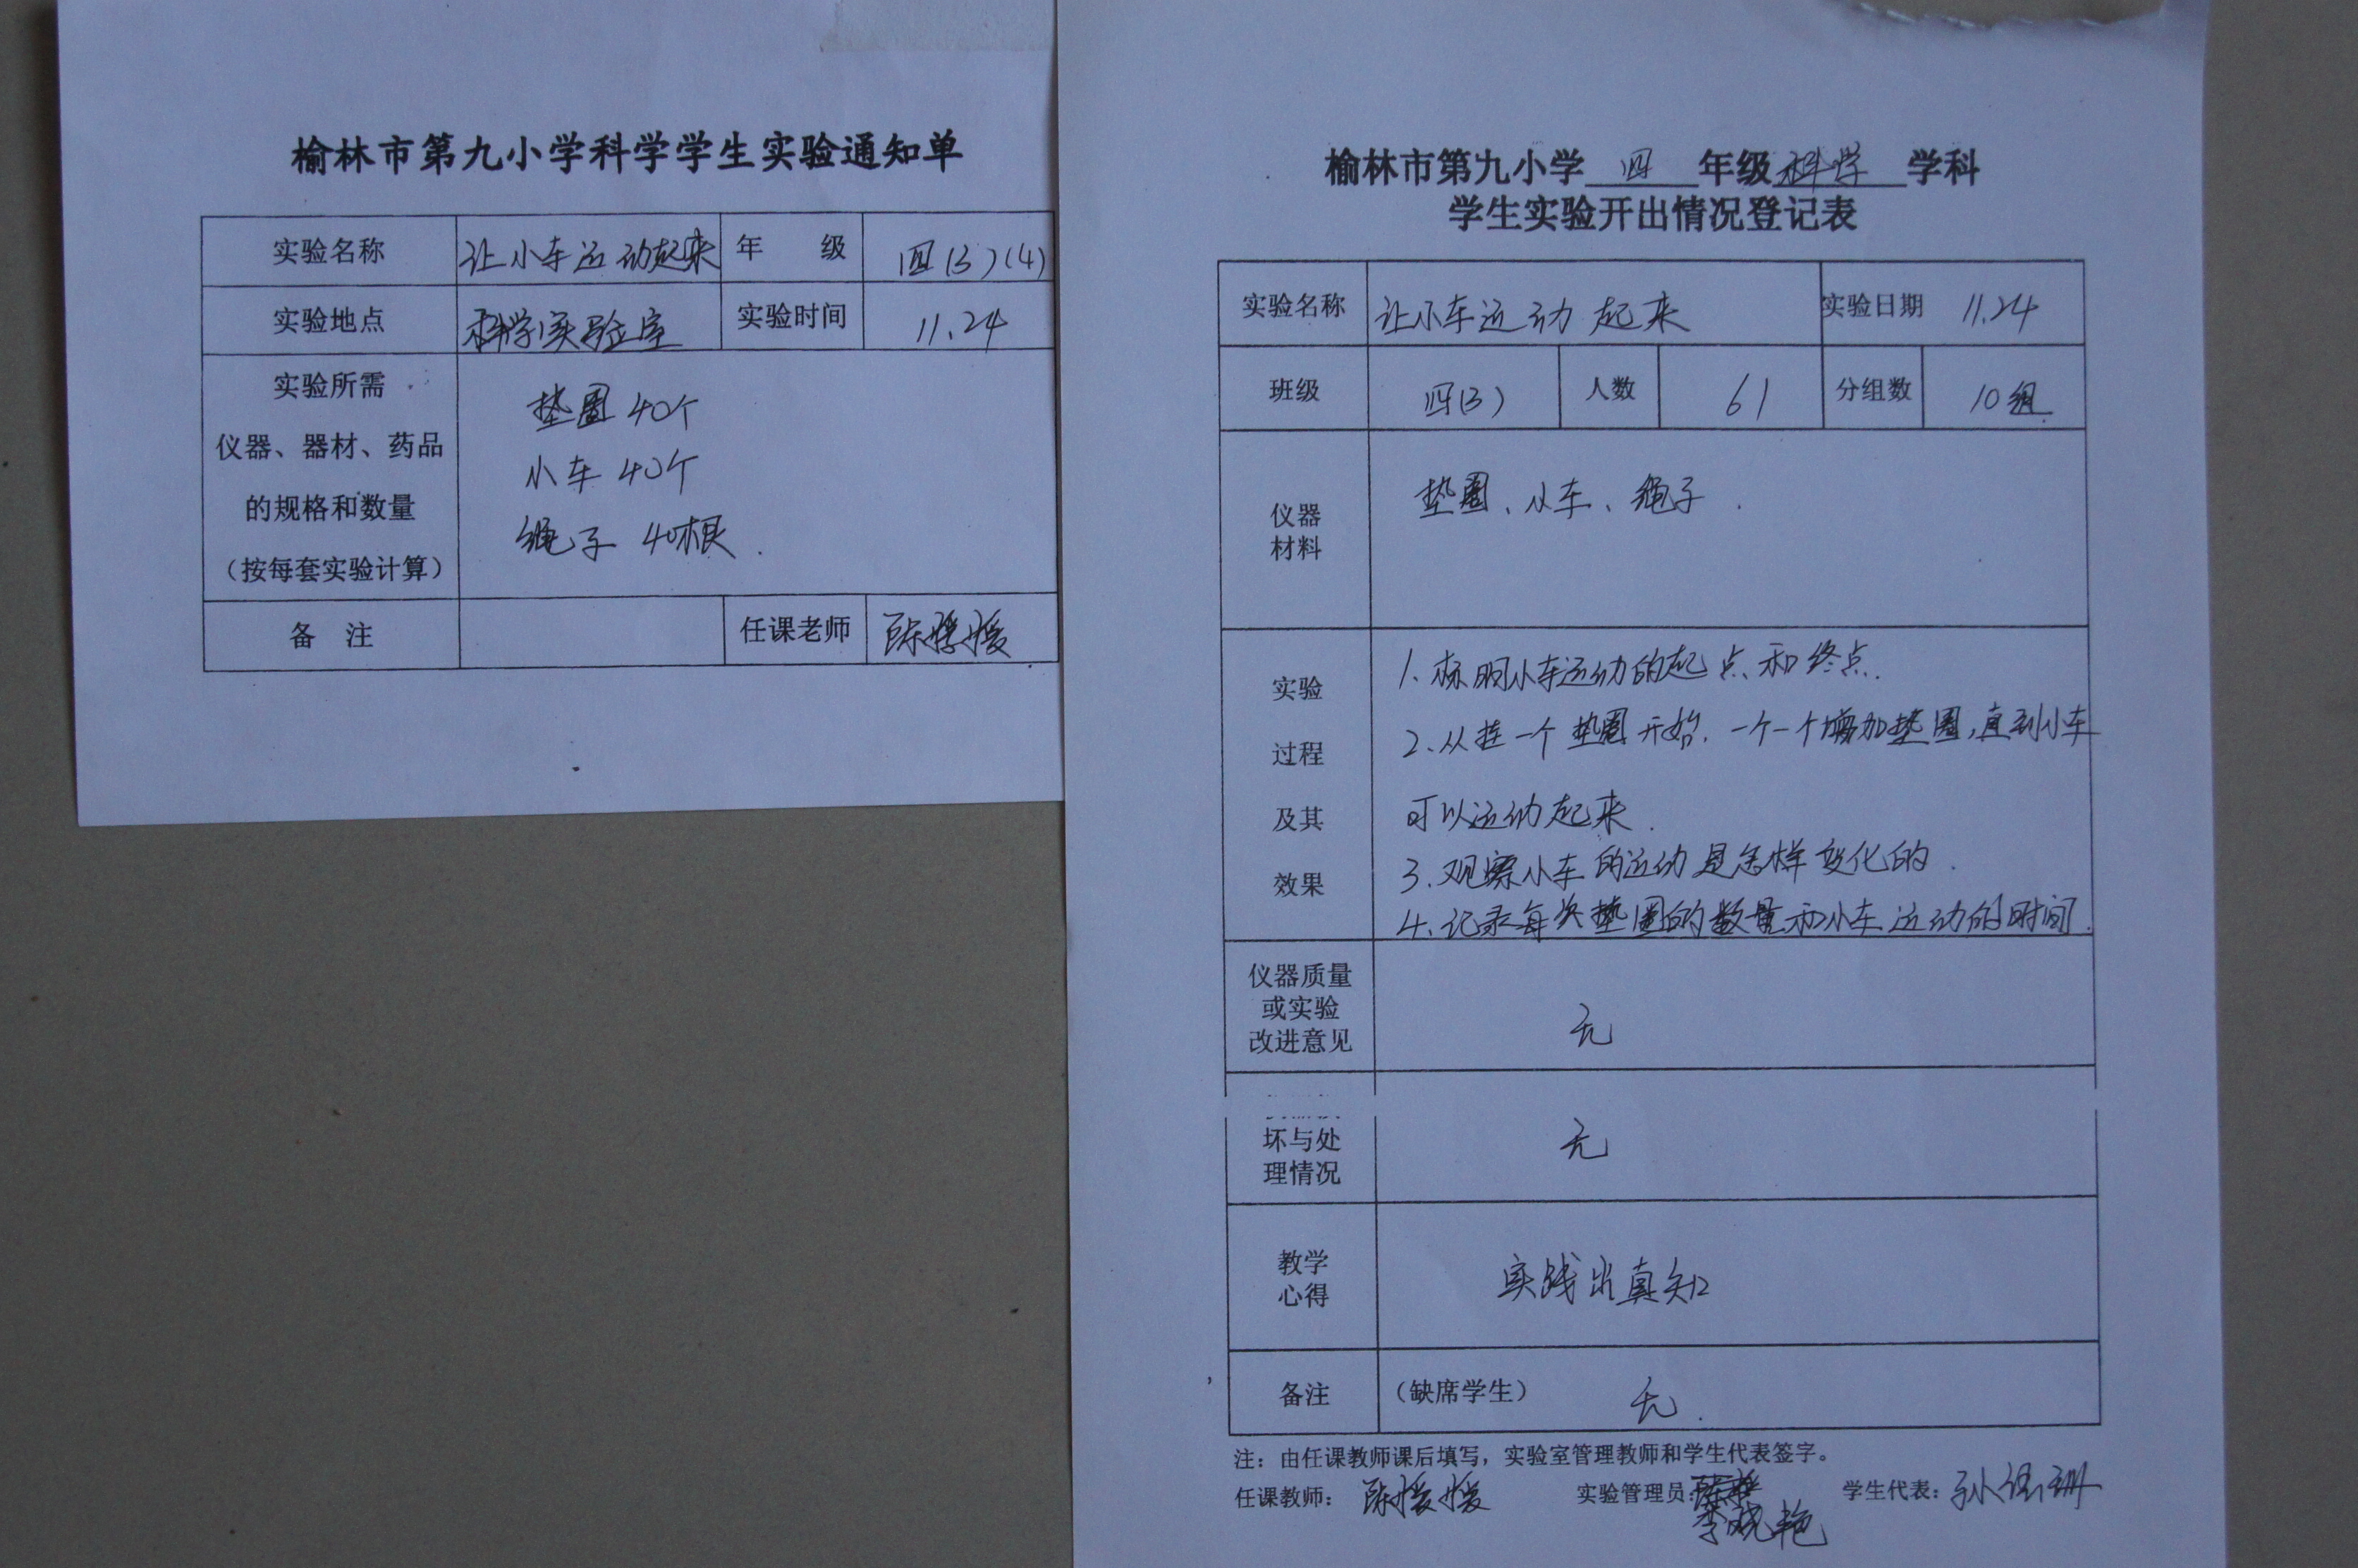 榆林市第九小学科学学生实验通知单
实验名称 让小车运动起来 年 级 四(3)(4)
实验地点 科学实验室 实验时间 11.24
实验所需
仪器、器材、药品
的规格和数量
（按每套实验计算）
垫圈 40个
小车 40个
绳子 40根.
备 注 任课老师 陈媛媛
榆林市第九小学 四 年级 科学 学科
学生实验开出情况登记表
实验名称 让小车运动起来 实验日期 11.24
班级 四(3) 人数 61 分组数 10组
仪器
材料
垫圈、小车、绳子.
实验
过程
及其
效果
1.标明小车运动的起点和终点.
2.从挂一个垫圈开始.一个一个增加垫圈,直到小车
可以运动起来.
3.观察小车的运动是怎样变化的.
4.记录每次垫圈的数量和小车运动的时间.
仪器质量
或实验
改进意见
无
坏与处
理情况
无
教学
心得
实践出真知
备注 （缺席学生） 无.
注：由任课教师课后填写，实验室管理教师和学生代表签字。
任课教师： 陈媛媛 实验管理员： 学生代表：
李晓艳